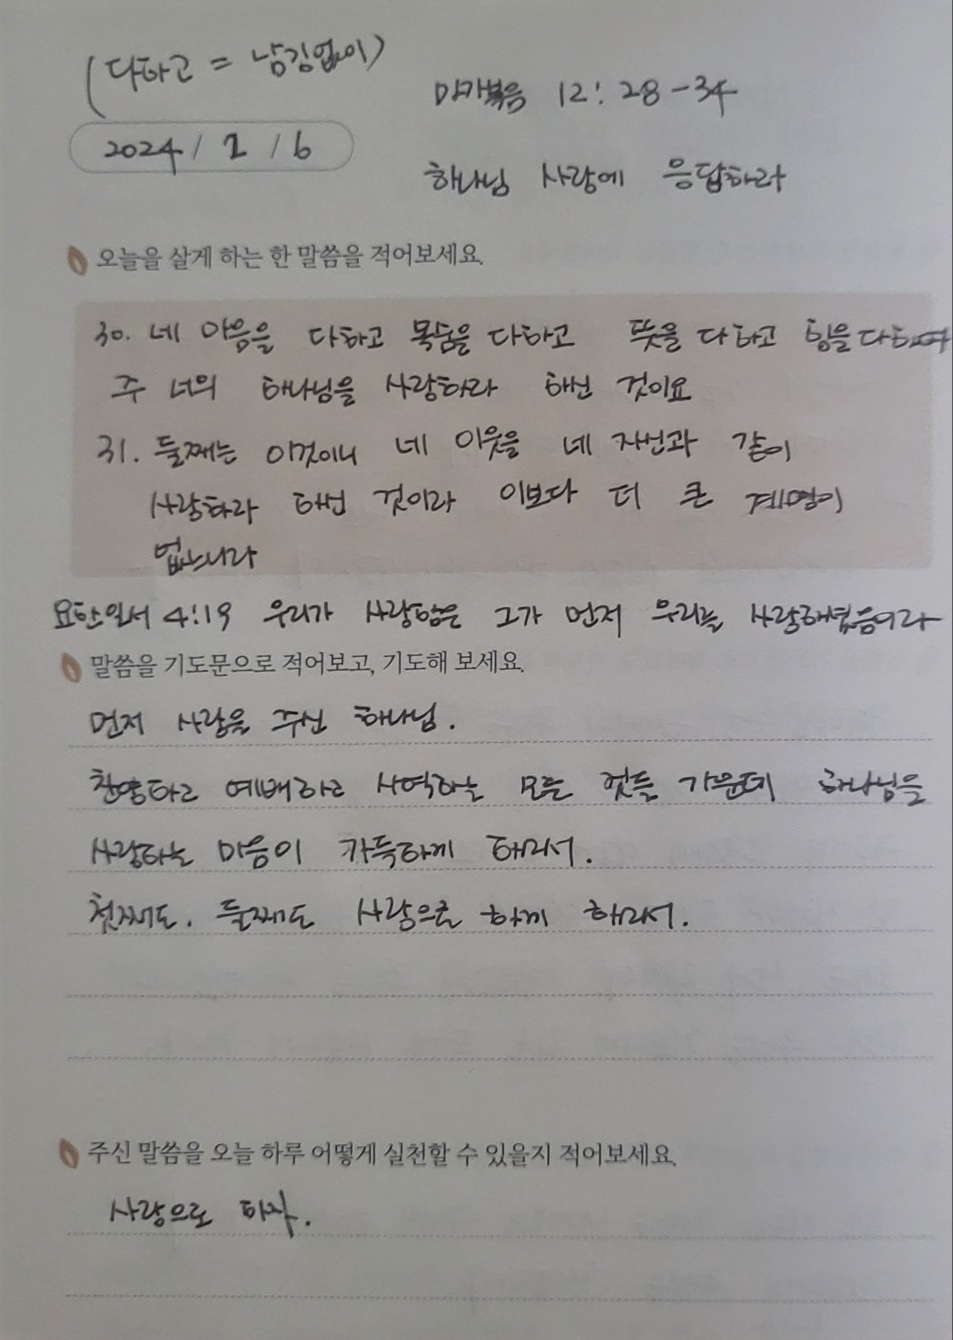 (다하고 = 남김없이)
마가복음 12:28-34
2024/ 2 /6
하나님 사랑에 응답하라
오늘을 살게 하는 한 말씀을 적어보세요.
30. 네 마음을 다하고 목숨을 다하고 뜻을 다하고 힘을 다하여
주 너의 하나님을 사랑하라 하신 것이요
31. 둘째는 이것이니 네 이웃을 네 자신과 같이
사랑하라 하신 것이라 이보다 더 큰 계명이
없느니라
요한일서 4:19 우리가 사랑함은 그가 먼저 우리를 사랑하셨음이라
말씀을 기도문으로 적어보고, 기도해 보세요.
먼저 사랑을 주신 하나님.
찬양하고 예배하고 사역하는 모든 것들 가운데 하나님을
사랑하는 마음이 가득하게 하소서.
첫째도, 둘째도 사랑으로 하게 하소서.
주신 말씀을 오늘 하루 어떻게 실천할 수 있을지 적어보세요.
사랑으로 하자.